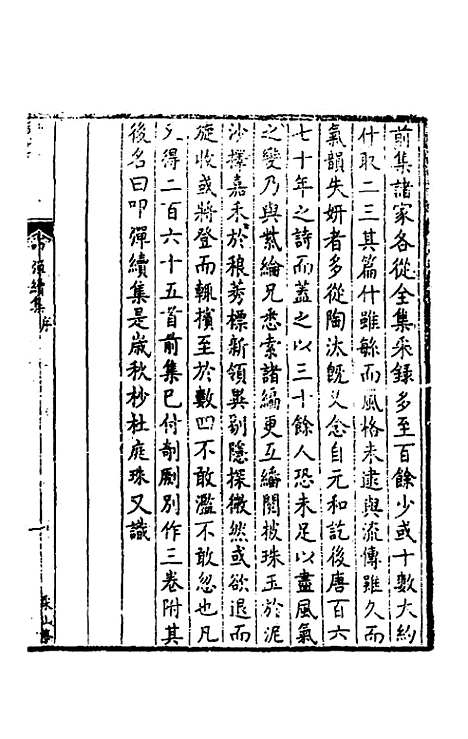 前集諸家各從全集采錄多至百餘少或十數大約
什取二三其篇什雖餘而風格未逮與流傳雖久而
氣韻失妍者多從陶汰旣又念自元和訖後唐百六
七十年之詩而蓋之以三十餘人恐未足以盡風氣
之變乃與紫綸兄悉索諸編更互繙閱披珠玉於泥
沙擇嘉禾於稂莠標新領異剔隱探微然或欲退而
旋收或將登而輒擯至於數四不敢濫不敢忽也凡
又得二百六十五首前集已付剞劂別作三卷附其
後名曰叩彈續集是歲秋杪杜庭珠又識
叩彈續集 序
一
采山亭